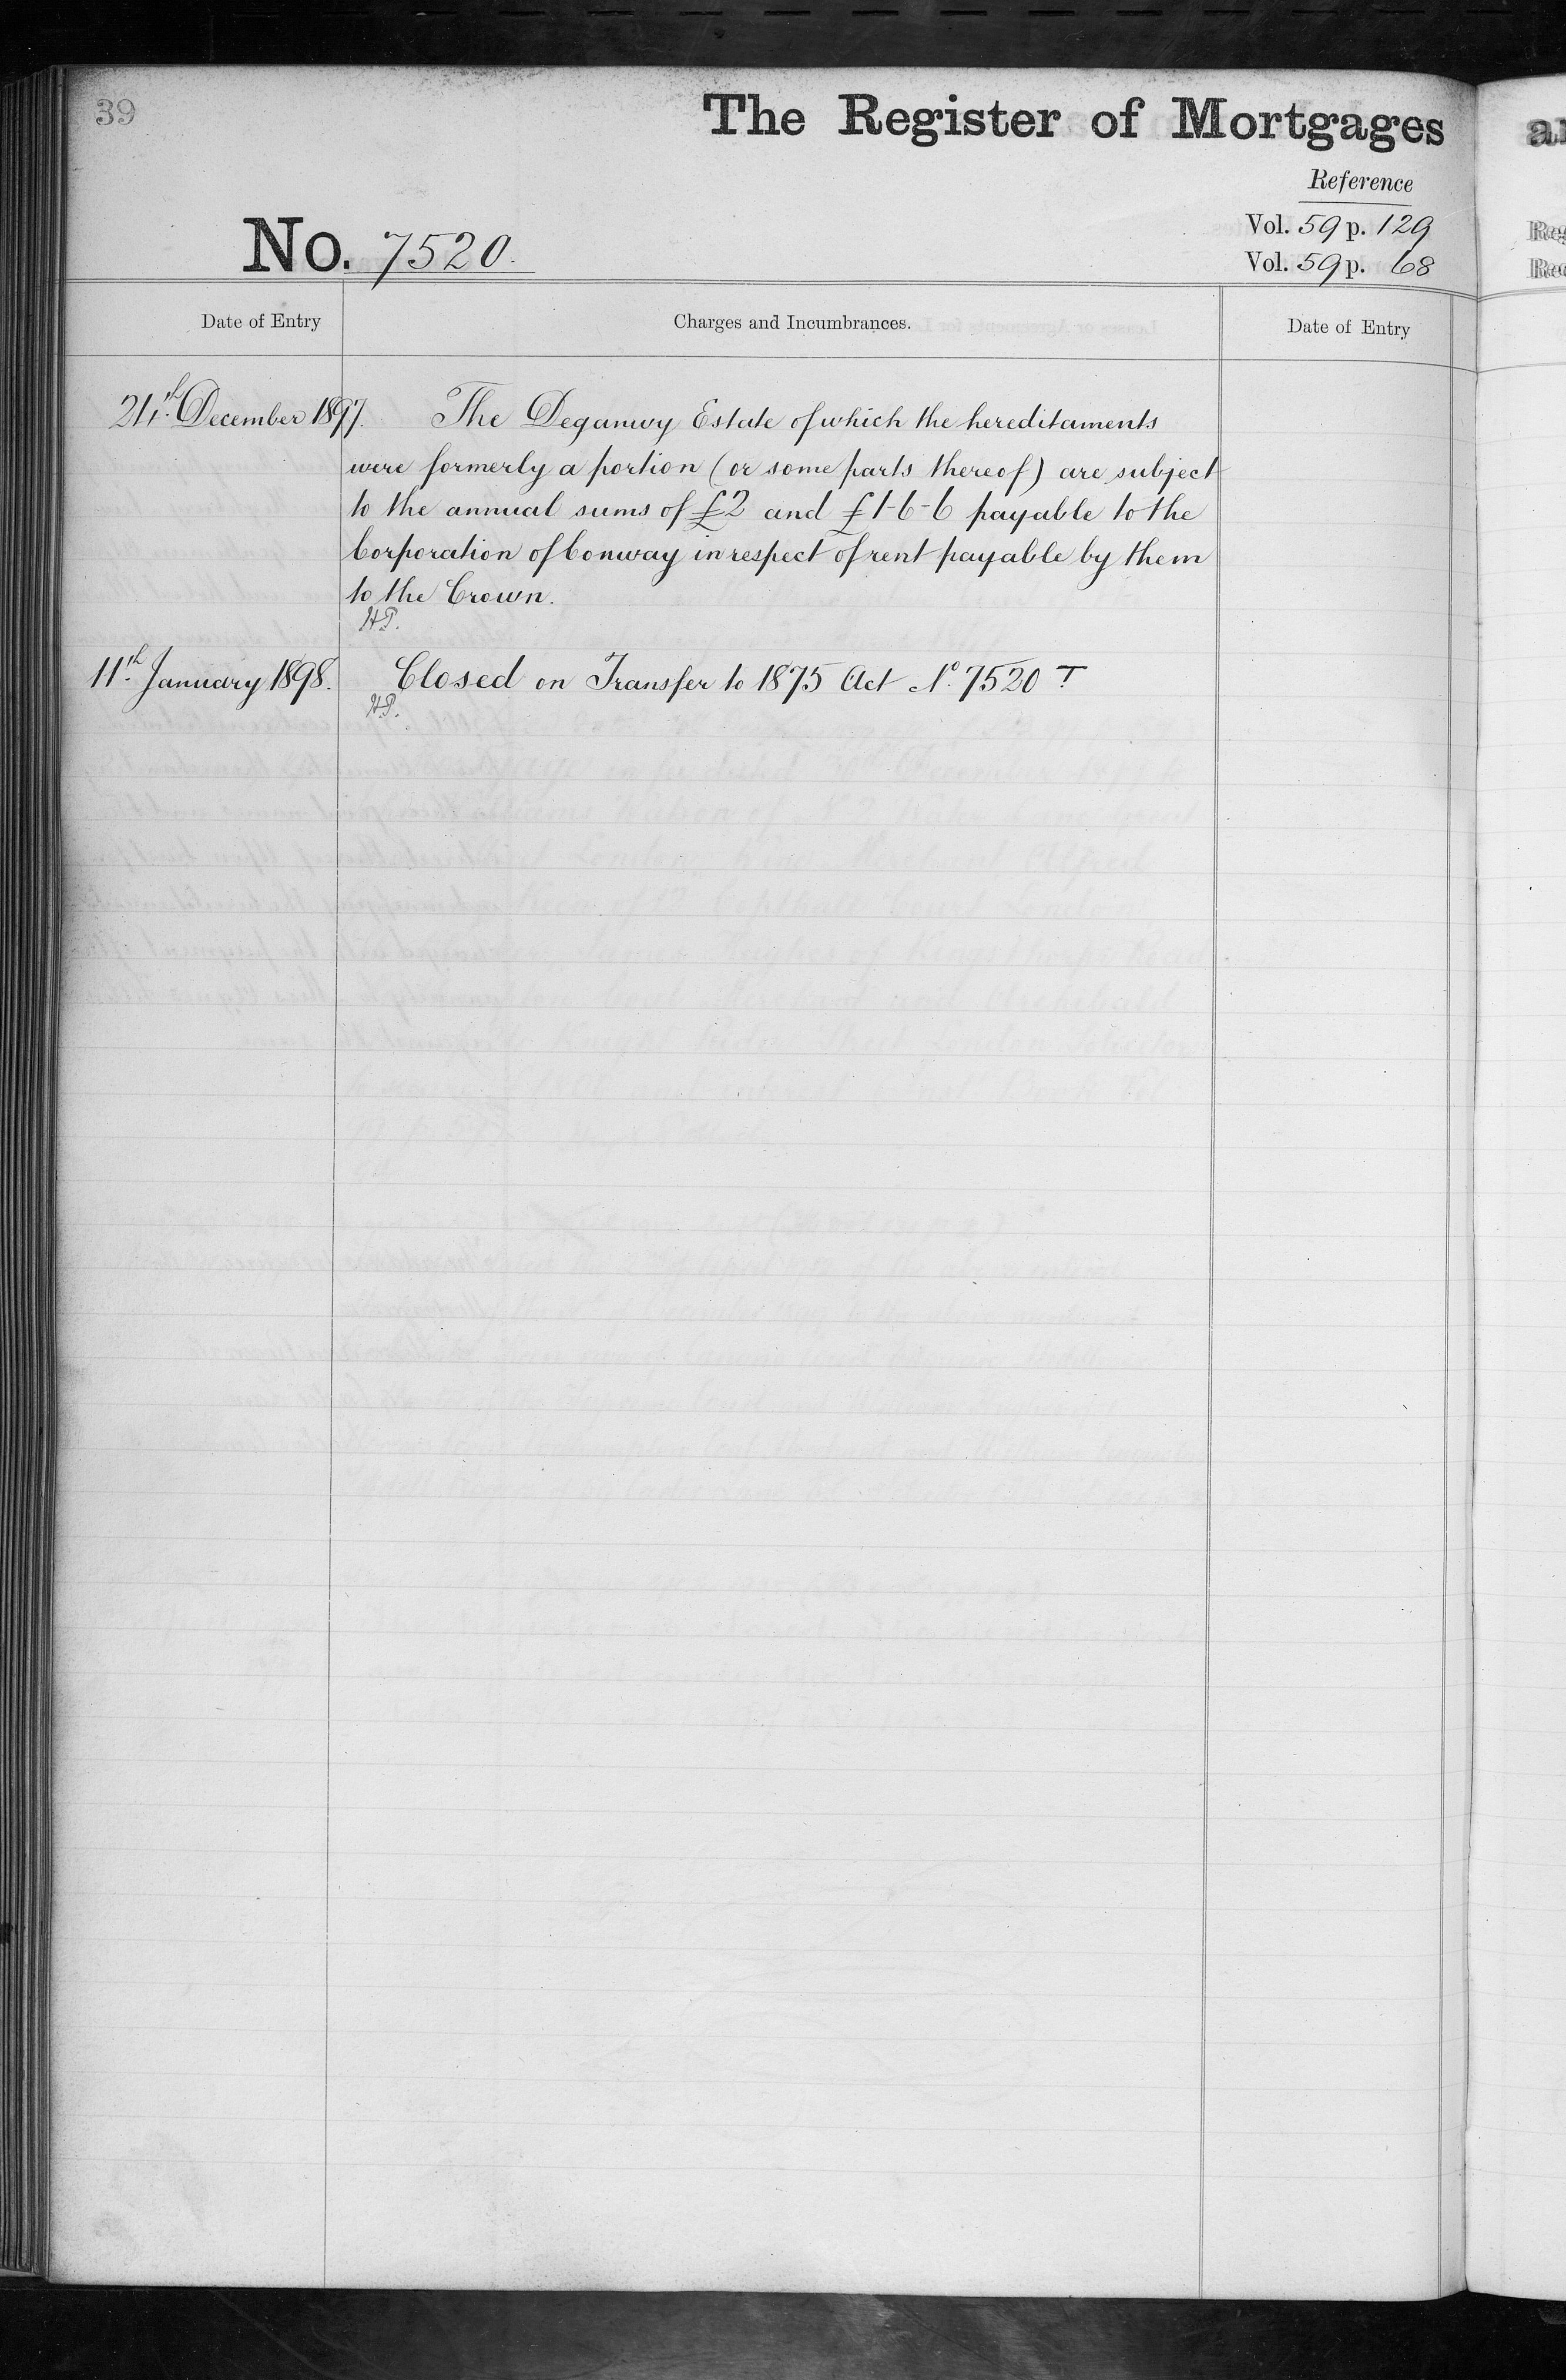 39
The Register of Mortgages
Reference
Vol. 59 p. 129
No. 7520.
Vol. 59 p. 68
Date of Entry
Charges and Incumbrances.
Date of Entry
24th December 1897. The Deganwy Estate of which the hereditaments
were formerly a portion (or some parts thereof) are subject
to the annual sums of £2 and £1-6-6 payable to the
Corporation of Conway in respect of rent payable by them
to the Crown.
11th January 1898. Closed on Transfer to 1875 Act No 7520 T